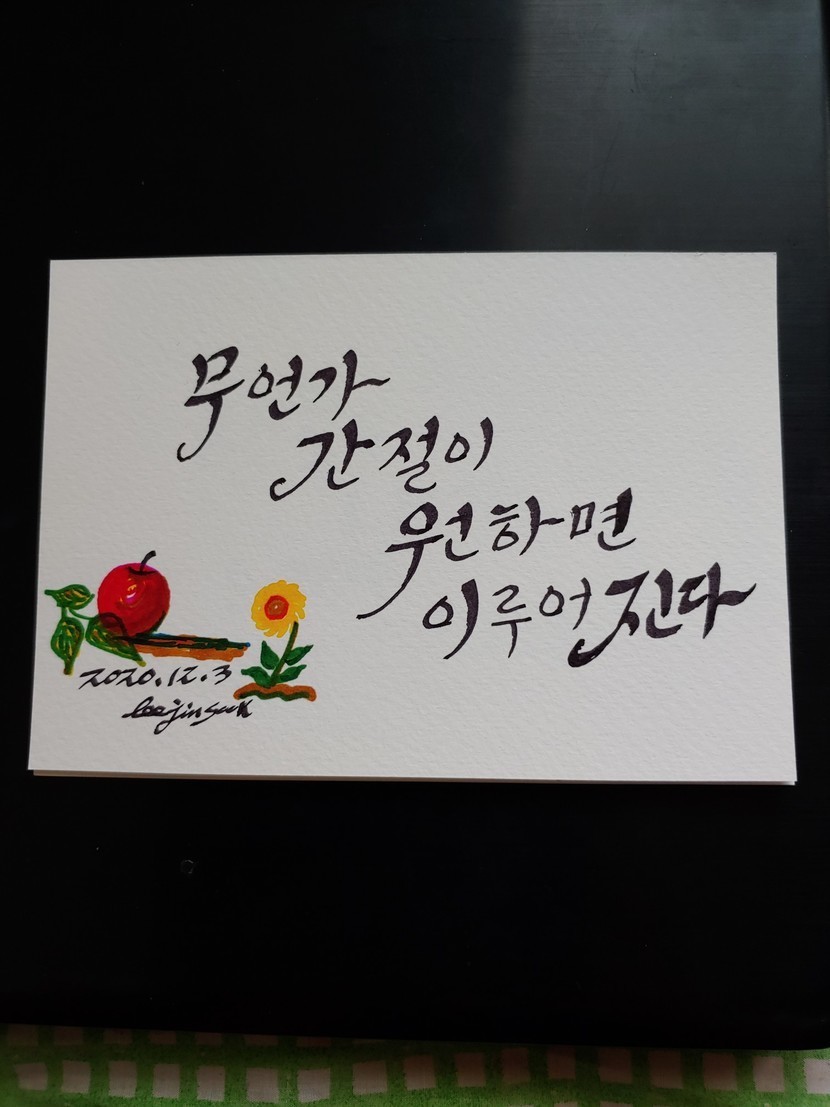 무언가
간절이
원하면
이루어진다
2020.12.3
leejinsuk